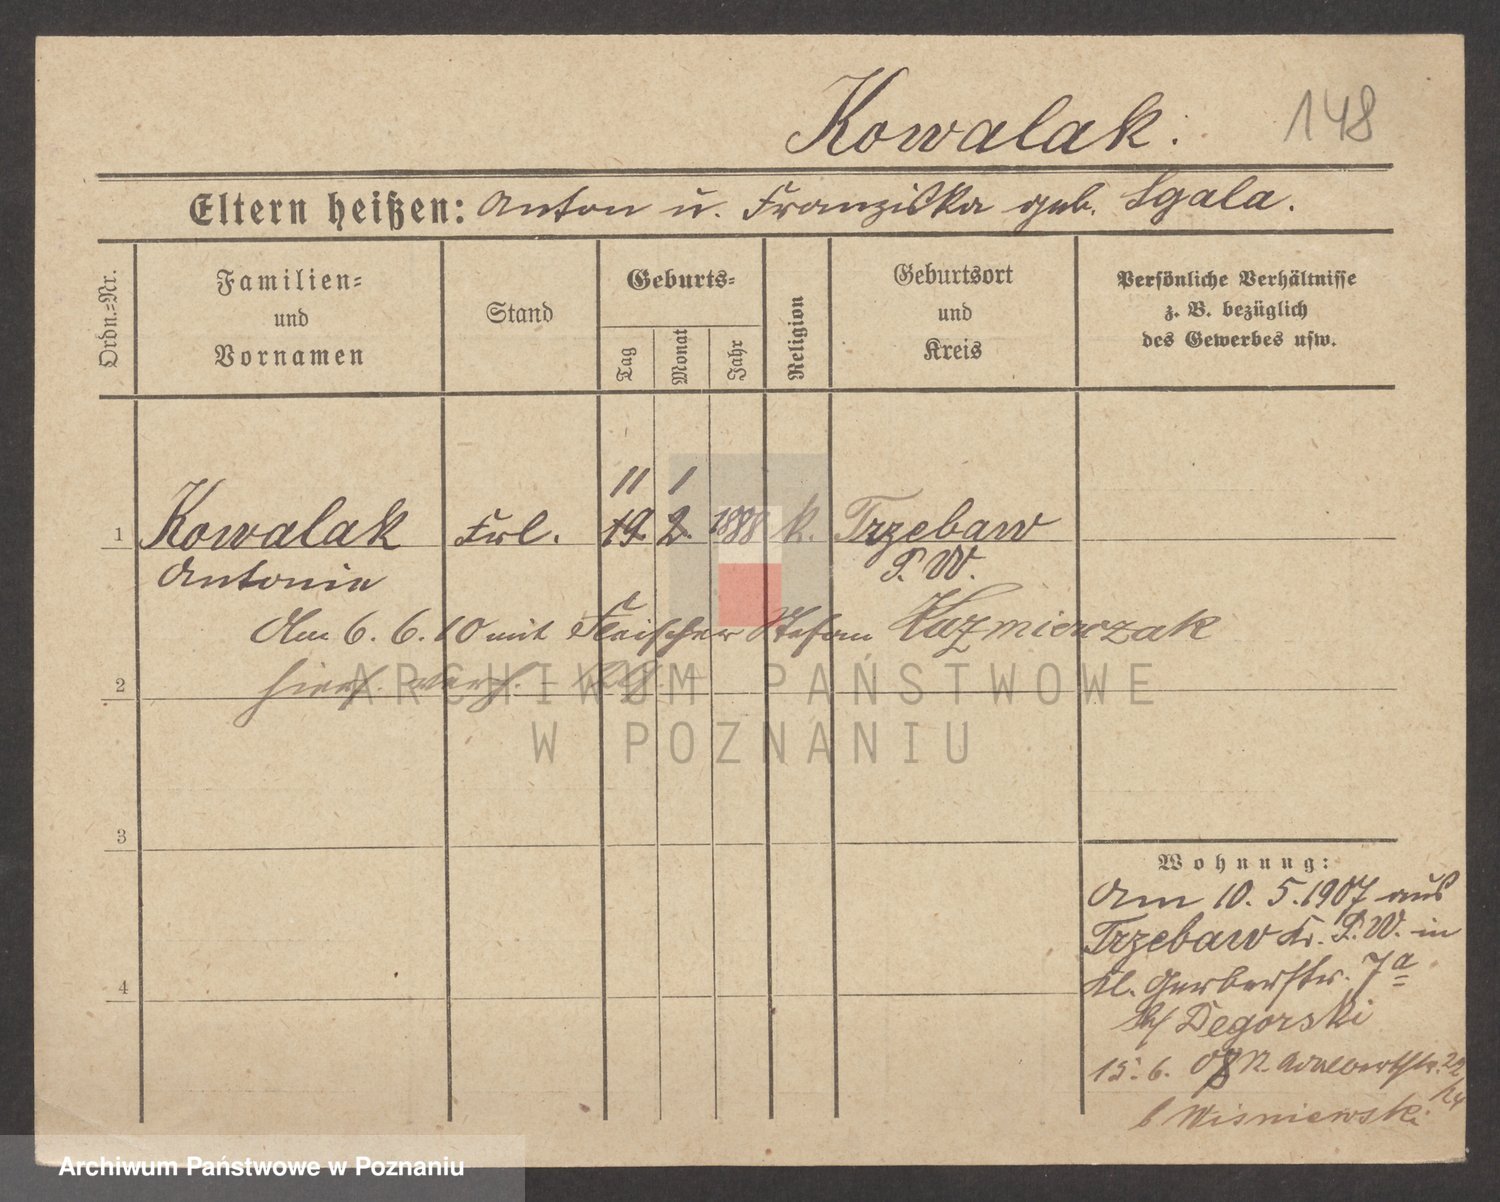 Kowalak. 148
Eltern heißen: Anton u. Franziska geb. Sgala.
Ordn.=Nr.
Familien=
und
Vornamen
Stand
Geburts=
Tag
Monat
Jahr
Religion
Geburtsort
und
Kreis
Persönliche Verhältnisse
z. B. bezüglich
des Gewerbes usw.
11 1
1 Kowalak Frl. 19. 2. 1888 k. Trzebaw
Antonie P. W.
Am 6. 6. 10 mit Fleischer Stefan Kazmierczak
2 hiers. verh.
3
4
Wohnung:
Am 10. 5. 1907 aus
Trzebaw Kr. P. W. in
Kl. Gerberstr. 7a
b/ Degorski
15. 6. 08 n. Adalbertstr. 22/24
b Wisniewski
ARCHIWUM PAŃSTWOWE
W POZNANIU
Archiwum Państwowe w Poznaniu